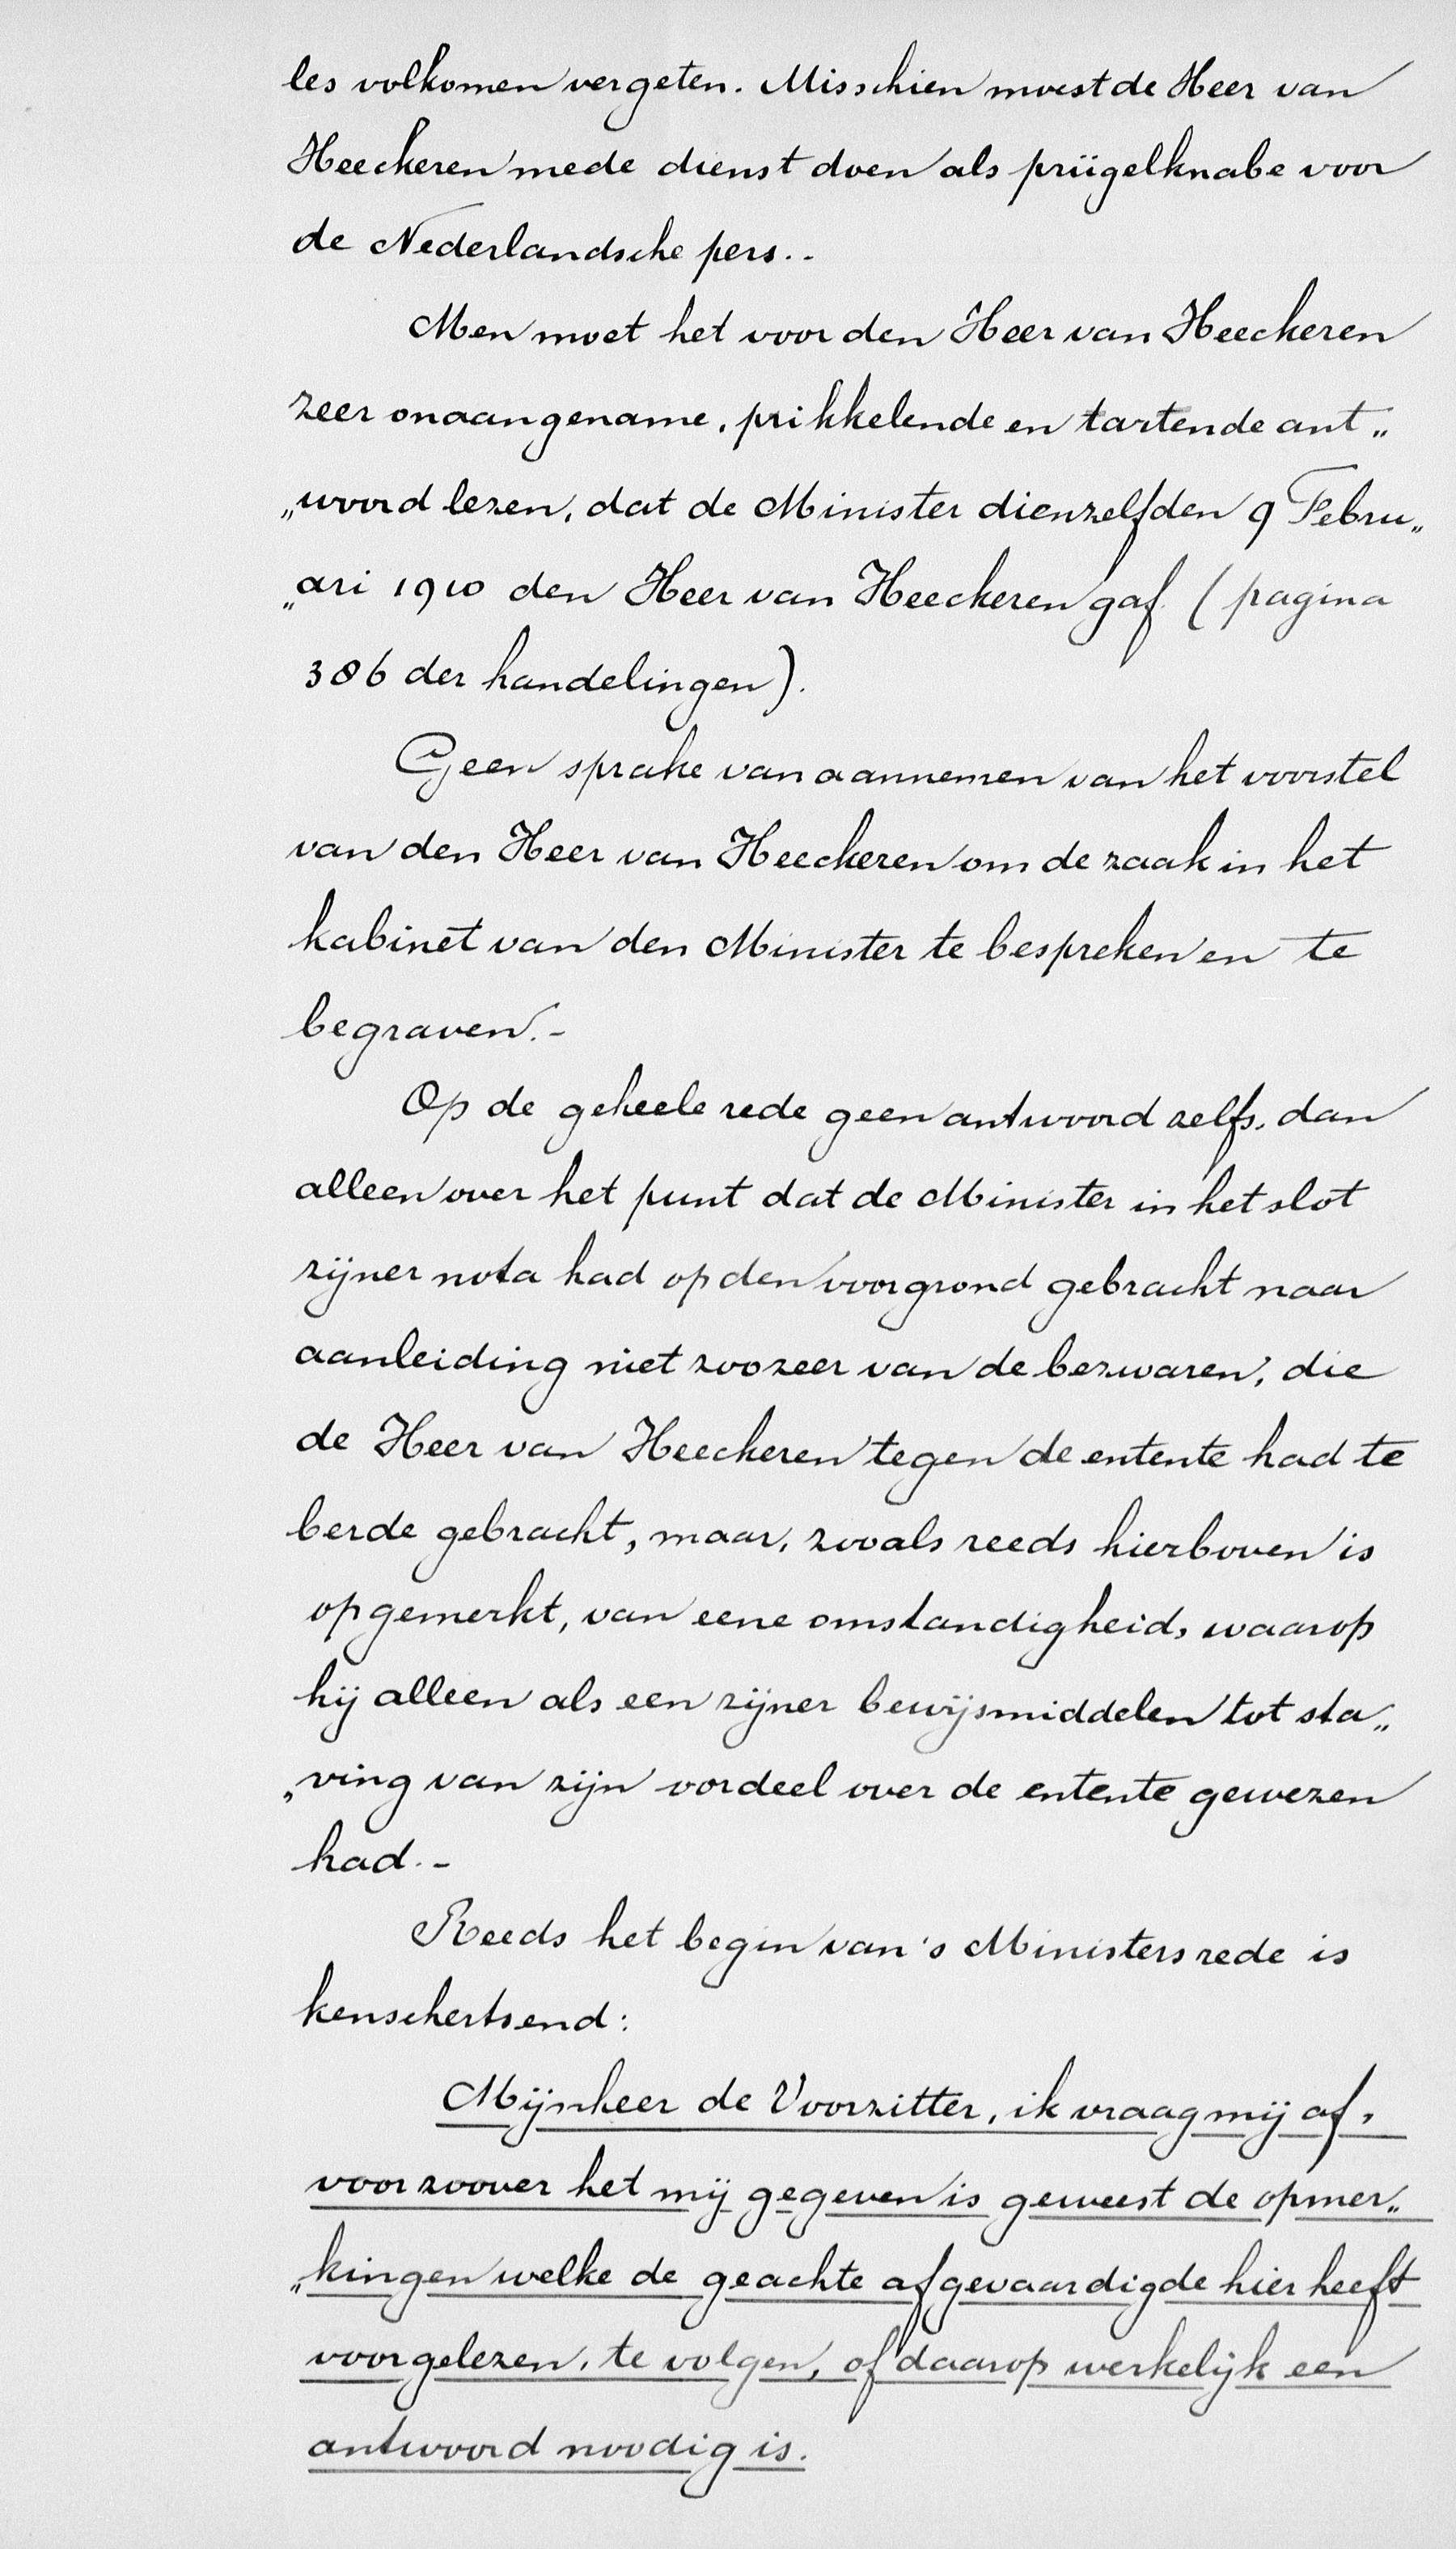 les volkomen vergeten. Misschien moest de Heer van
Heeckeren mede dienst doen als prügelknabe voor
de Nederlandsche pers..
Men moet het voor den Heer van Heeckeren
zeer onaangename, prikkelende en tartende ant„
„woord lezen, dat de Minister dienzelfden 9 Febru„
„ari 1910 den Heer van Heeckeren gaf (pagina
386 der handelingen).
Geen sprake van aannemen van het voorstel
van den Heer van Heeckeren om de zaak in het
kabinet van den Minister te bespreken en te
begraven.-
Op de geheele rede geen antwoord zelfs, dan
alleen over het punt dat de Minister in het slot
zijner nota had op den voorgrond gebracht naar
aanleiding niet zoozeer van de bezwaren, die
de Heer van Heeckeren tegen de entente had te
berde gebracht, maar, zooals reeds hierboven is
opgemerkt, van eene omstandigheid, waarop
hij alleen als een zijner bewijsmiddelen tot sta„
„ving van zijn oordeel over de entente gewezen
had.-
Reeds het begin van 's Ministers rede is
kenschertsend:
Mijnheer de Voorzitter, ik vraag mij af,
voor zoover het mij gegeven is geweest de opmer„
„kingen welke de geachte afgevaardigde hier heeft
voorgelezen, te volgen, of daarop werkelijk een
antwoord noodig is.